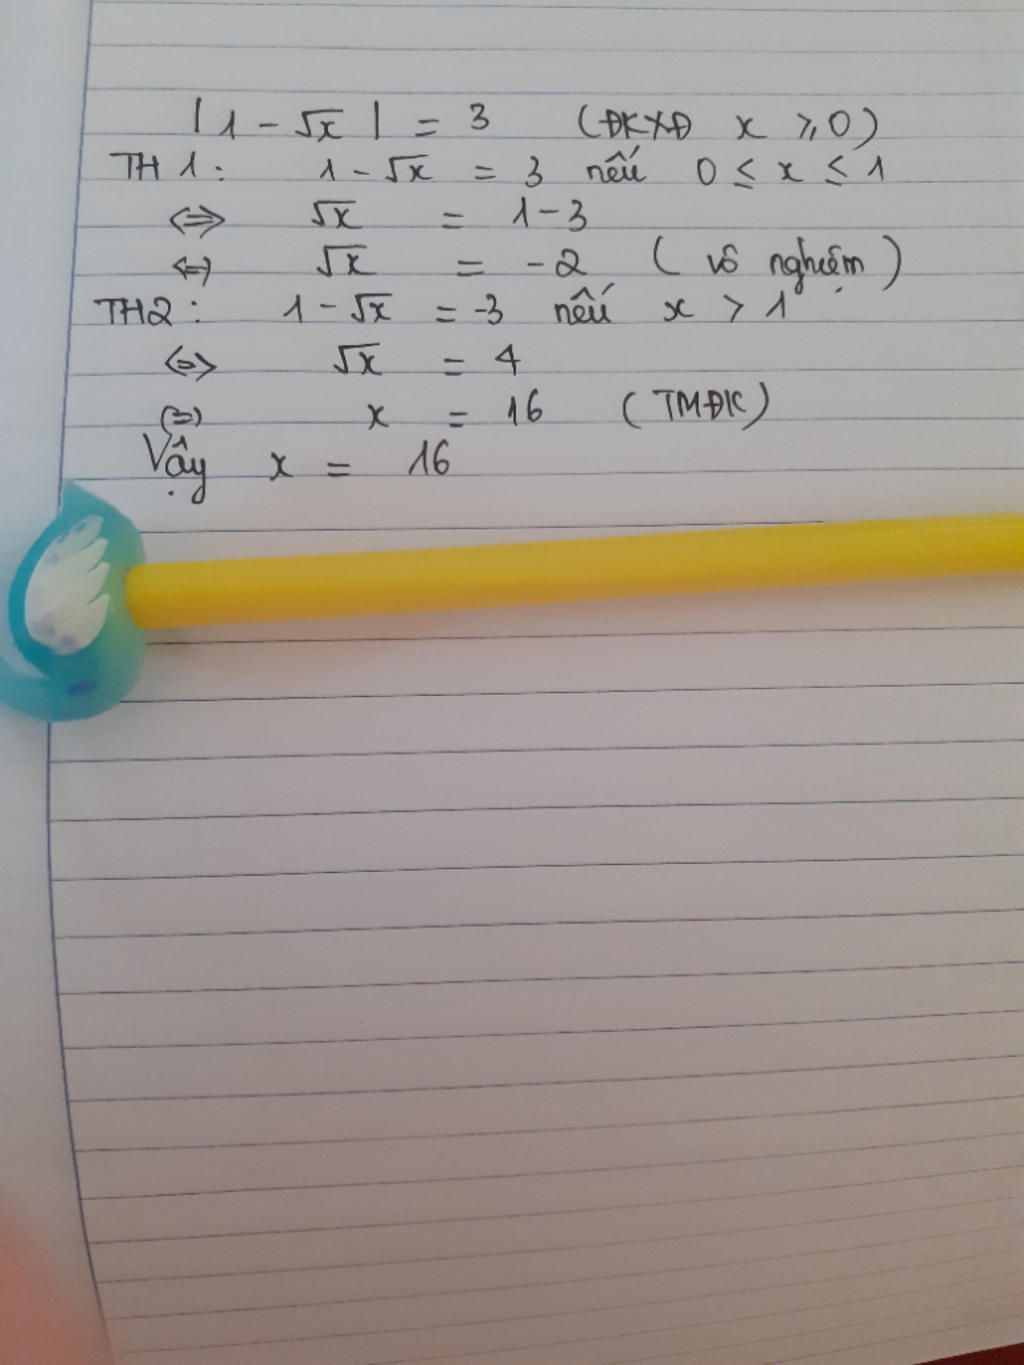 |1 - √x| = 3 (ĐKXĐ x ⩾ 0)
TH1: 1 - √x = 3 nếu 0 ≤ x ≤ 1
⇔ √x = 1 - 3
⇔ √x = -2 (vô nghiệm)
TH2: 1 - √x = -3 nếu x > 1
⇔ √x = 4
⇔ x = 16 (TMĐK)
Vậy x = 16